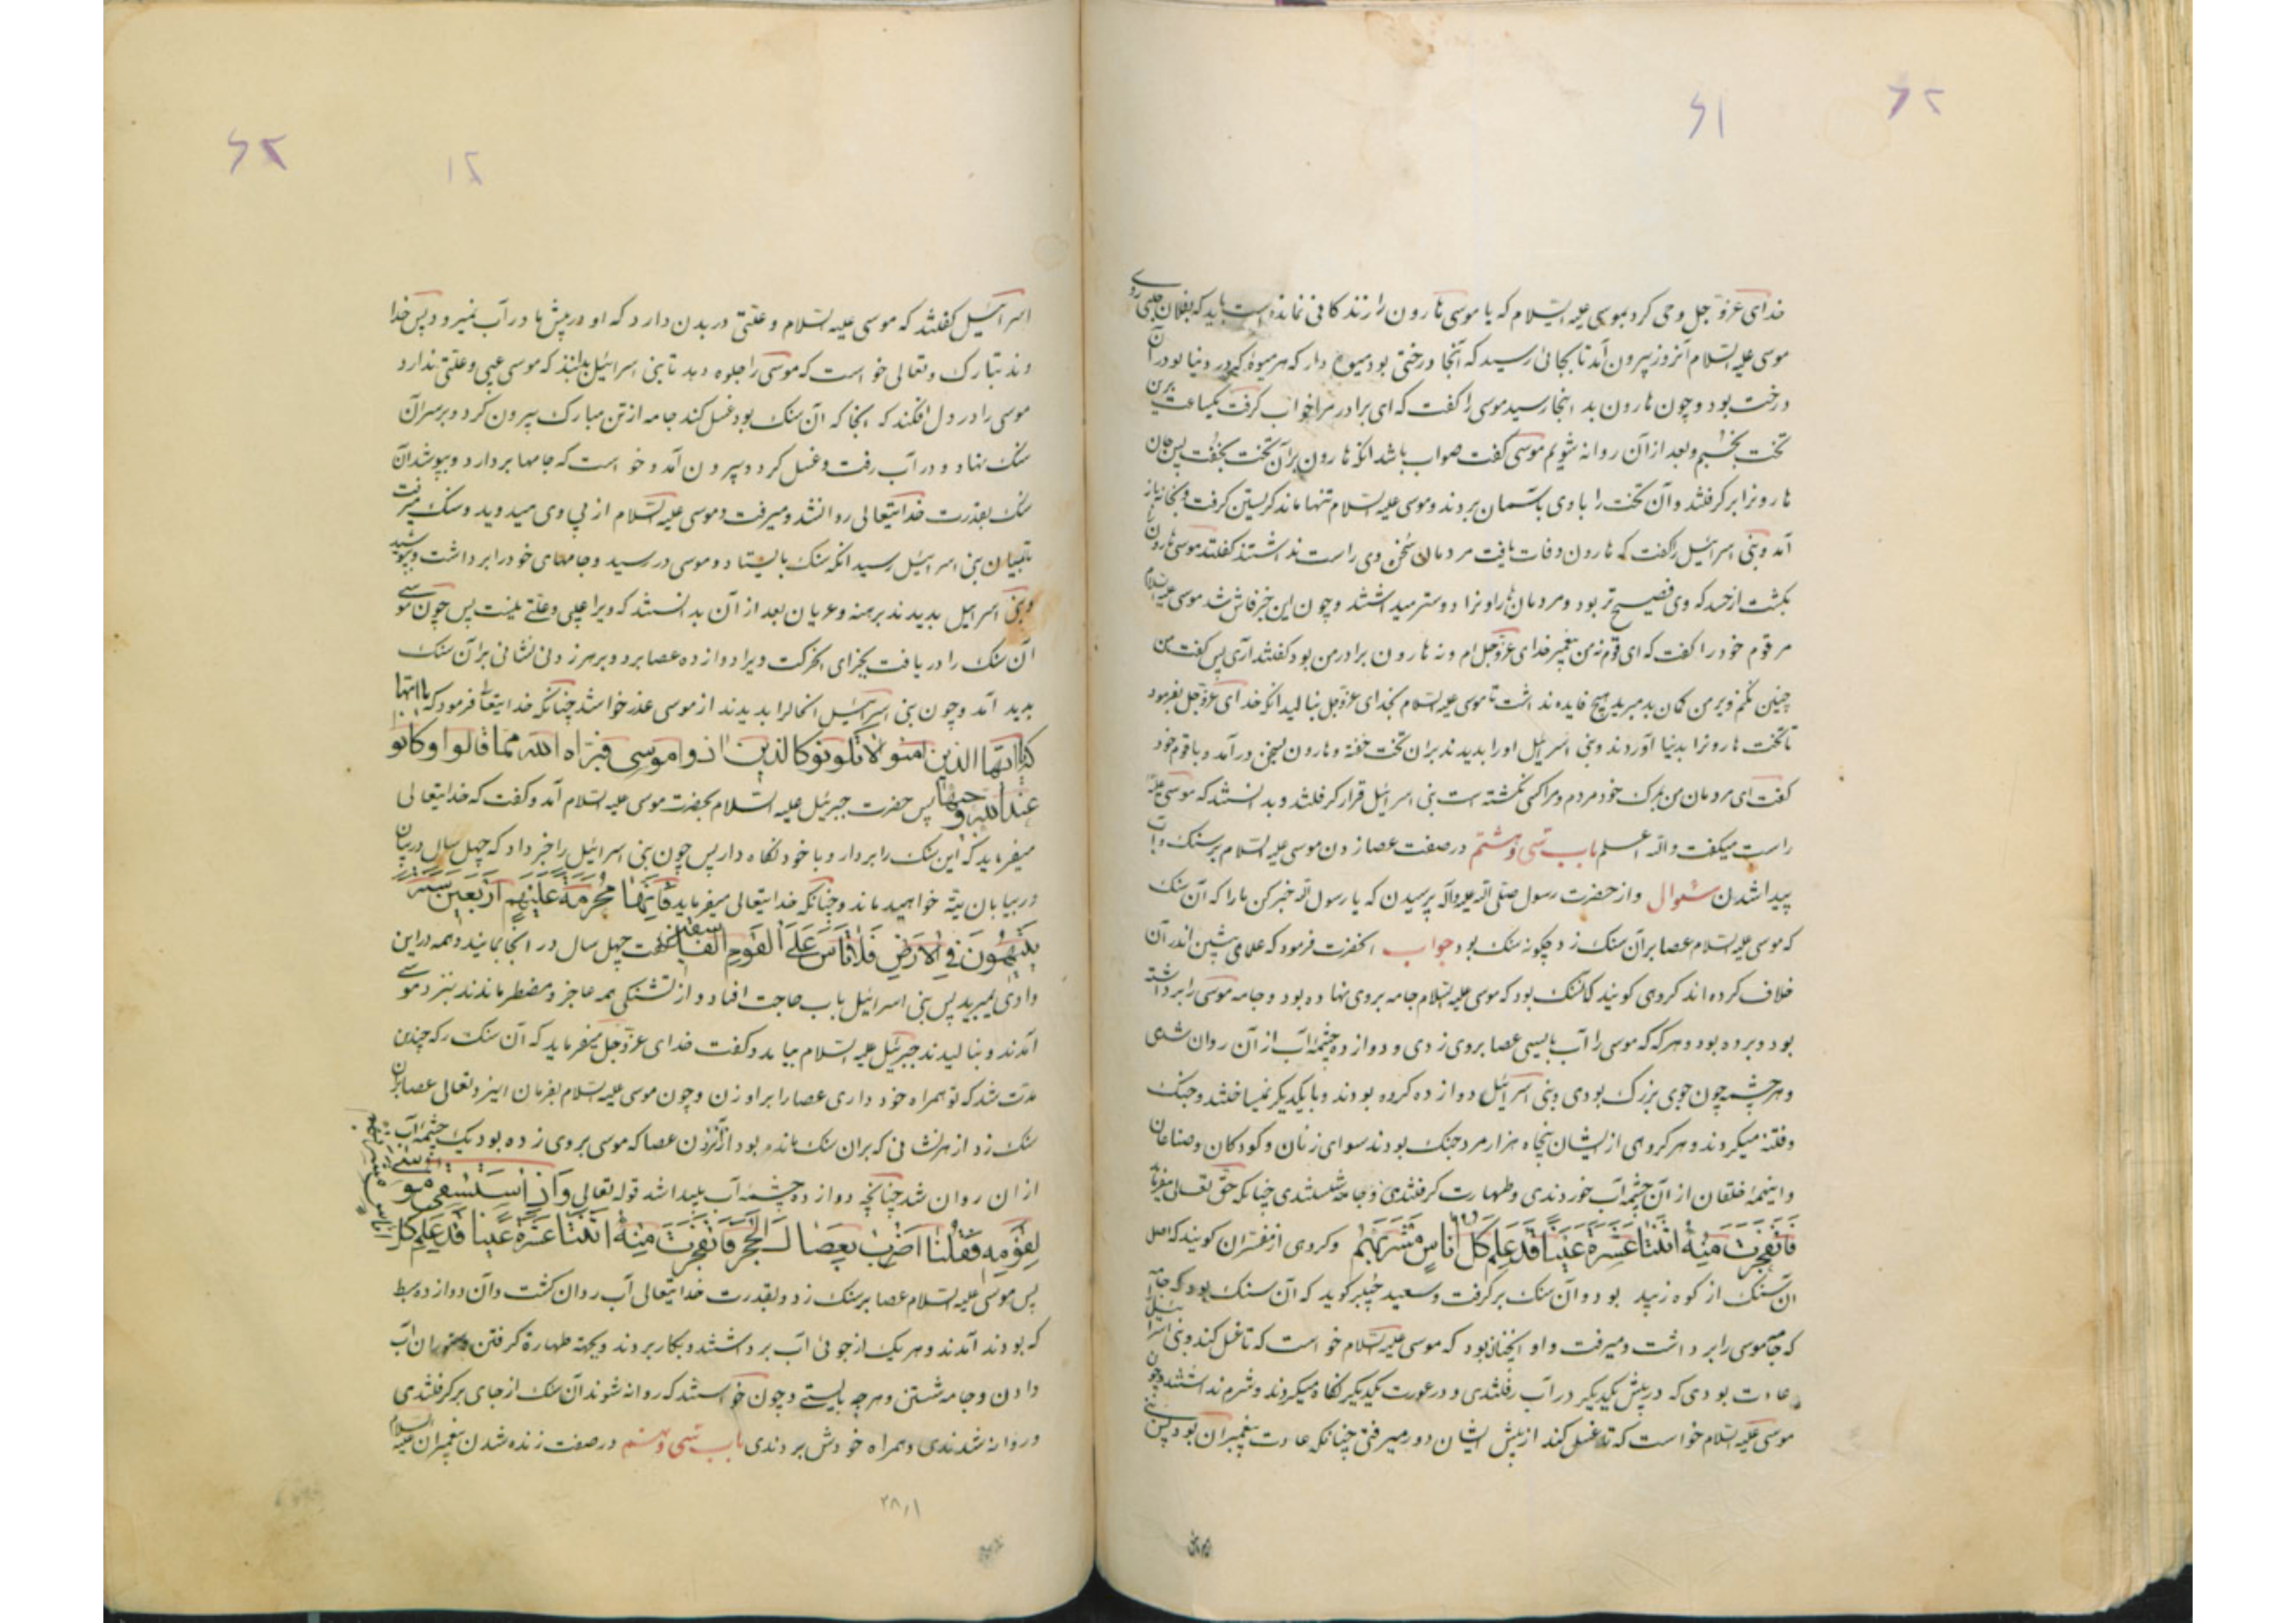 ۶۲
۶۱
خدای عزوجل وحی کرد بموسی علیه السلام که یا موسی هارون را زندکانی نمانده است باید که بفلان جای روی
موسی علیه السلام آنروز بیرون آمد تا بجائی رسید که آنجا درختی بود میوه دار که هر میوه که در دنیا بود در آن
درخت بود و چون هارون بد اینجا رسید موسی را کفت که ای برادر مرا خواب کرفت یکساعت برین
تخت بخسبم و بعد از آن روانه شویم موسی کفت صواب باشد انکه هارون بر آن تخت بخفت پس جان
هارونرا برکرفتند و آن تخت را با وی بآسمان بردند و موسی علیه السلام تنها ماند کریستن کرفت و بخانه باز
آمد و بنی اسرائیل را کفت که هارون وفات یافت مردمان سخن وی راست نداشتند کفتند موسی هارون را
بکشت از حسد که وی فصیح تر بود و مردمان هارونرا دوستر میداشتند و چون این خبر فاش شد موسی علیه السلام
مر قوم خود را کفت که ای قوم نه من پیغمبر خدای عزوجل ام و نه هارون برادر من بود کفتند آری پس کفت من
چنین نکنم و بر من کمان بد مبرید هیچ فایده نداشت تا موسی علیه السلام بخدای عزوجل بنالید انکه خدای عزوجل بفرمود
تا تخت هارونرا بدنیا آوردند و بنی اسرائیل او را بدیدند بران تخت خفته و هارون بسخن در آمد و با قوم خود
کفت ای مردمان من بمرک خود مردم و مرا کسی نکشته است بنی اسرائیل قرار کرفتند و بدانستند که موسی علیه
راست میکفت والله اعلم باب سی و هشتم در صفت عصا زدن موسی علیه السلام بر سنک و آب
پیدا شدن سئوال و از حضرت رسول صلی الله علیه وآله پرسیدن که یا رسول الله خبر کن ما را که آن سنک
که موسی علیه السلام عصا بر آن سنک زد چکونه سنک بود جواب انحضرت فرمود که علمای پیشین اندر آن
خلاف کرده اند کروهی کویند که آن سنک بود که موسی علیه السلام جامه بر وی نهاده بود و جامه موسی را برداشته
بود و برده بود و هرکه که موسی را آب بایستی عصا بر وی زدی و دوازده چشمه آب از آن روان شدی
و هر چشمه چون جوی بزرک بودی و بنی اسرائیل دوازده کروه بودند و با یکدیکر نمیساختند و جنک
و فتنه میکردند و هر کروهی از ایشان پنجاه هزار مرد جنک بودند سوای زنان و کودکان و صناعان
و اینهمه خلقان از آن چشمه آب خوردندی و طهارت کرفتندی و جامه شستندی چنانکه حق تعالی میفرماید
فَانْفَجَرَتْ مِنْهُ اثْنَتا عَشْرَةَ عَيْناً قَدْ عَلِمَ كُلُّ اُناسٍ مَشْرَبَهُمْ و کروهی از مفسران کویند که اصل
آن سنک از کوه زبید بود و آن سنک برکرفت و سعید جبیر کوید که آن سنک بود که جامه
که جامه موسی را برداشت و میرفت و او اینچنان بود که موسی علیه السلام خواست که تا غسل کند و بنی اسرائیل
عادت بودی که در پیش یکدیکر در آب رفتندی و در عورت یکدیکر نکاه میکردند و شرم نداشتند و چون
موسی علیه السلام خواست که تا غسل کند از پیش ایشان دور میرفتی چنانکه عادت پیغمبران بود پس بنی
۶۲
۱۲
اسرائیل کفتند که موسی علیه السلام و علتی در بدن دارد که او در پیش ما در آب نمیرود پس خدا
وند تبارک و تعالی خواست که موسی را جلوه دهد تا بنی اسرائیل بدانند که موسی عیبی و علتی ندارد
موسی را در دل افکند که انجا که ان سنک بود غسل کند جامه از تن مبارک بیرون کرد و بر سر آن
سنک نهاد و در آب رفت و غسل کرد و بیرون آمد و خواست که جامها بردارد و بپوشد آن
سنک بقدرت خدایتعالی روانشد و میرفت و موسی علیه السلام از پی وی میدوید و سنک میرفت
تا بمیان بنی اسرائیل رسید انکه سنک بایستاد و موسی در رسید و جامهای خود را برداشت و بپوشید
و بنی اسرائیل بدیدند برهنه و عریان بعد از آن بدانستند که ویرا عیبی و علتی نیست پس چون موسی
آن سنک را دریافت بجزای انحرکت ویرا دوازده عصا برد و بر هر زدنی نشانی بر آن سنک
پدید آمد و چون بنی اسرائیل انحالرا بدیدند از موسی عذر خواستند چنانکه خدایتعالی فرمود که یا ایها
ایها الذین امنوا لا تکونوا کالذین اذوا موسی فبراه الله مما قالوا و کانوا
عند الله وجیها پس حضرت جبرئیل علیه السلام بحضرت موسی علیه السلام آمد و کفت که خدایتعالی
میفرماید که این سنک را بردار و با خود نکاه دار پس چون بنی اسرائیل را خبر داد که چهل سال در بیابان
در بیابان تیه خواهید ماند و چنانکه خدایتعالی میفرماید فَاِنَّها مُحَرَّمَةٌ عَلَيْهِم اَرْبَعِينَ سَنَةً
يَتِيهُونَ فِي الْاَرْضِ فَلا تَأْسَ عَلَى الْقَوْمِ الْفاسِقِينَ کفت چهل سال در انجا بمانید و همه در این
وادی بمیرید پس بنی اسرائیل بآب حاجت افتاد و از تشنکی همه عاجز و مضطر ماندند بنزد موسی
آمدند و بنالیدند جبرئیل علیه السلام بیامد و کفت خدای عزوجل میفرماید که آن سنک را که چندین
مدت شد که تو همراه خود داری عصا را بر او زن و چون موسی علیه السلام بفرمان ایزد تعالی عصا بران
سنک زد از هر نشانی که بران سنک مانده بود از آن زدن عصا که موسی بر وی زده بود یک چشمه آب
از ان روان شد چنانچه دوازده چشمه آب پیدا شد قوله تعالی وَاِذِ اسْتَسْقى مُوسى
لِقَوْمِهِ فَقُلْنَا اضْرِبْ بِعَصاكَ الْحَجَرَ فَانْفَجَرَتْ مِنْهُ اثْنَتا عَشْرَةَ عَيْناً قَدْ عَلِمَ كُلُّ
اناس مشربهم
پس موسی علیه السلام عصا بر سنک زد و بقدرت خدایتعالی آب روان کشت و آن دوازده سبط
که بودند آمدند و هر یک از جوئی آب برداشتند و بکار بردند و بجهة طهارة کرفتن و ستوران آب
دادن و جامه شستن و هرچه بایستی و چون خواستند که روانه شوند آن سنک از جای برکرفتندی
و روانه شدندی و همراه خودش بردندی باب سی و نهم در صفت زنده شدن پیغمبران علیه السلام